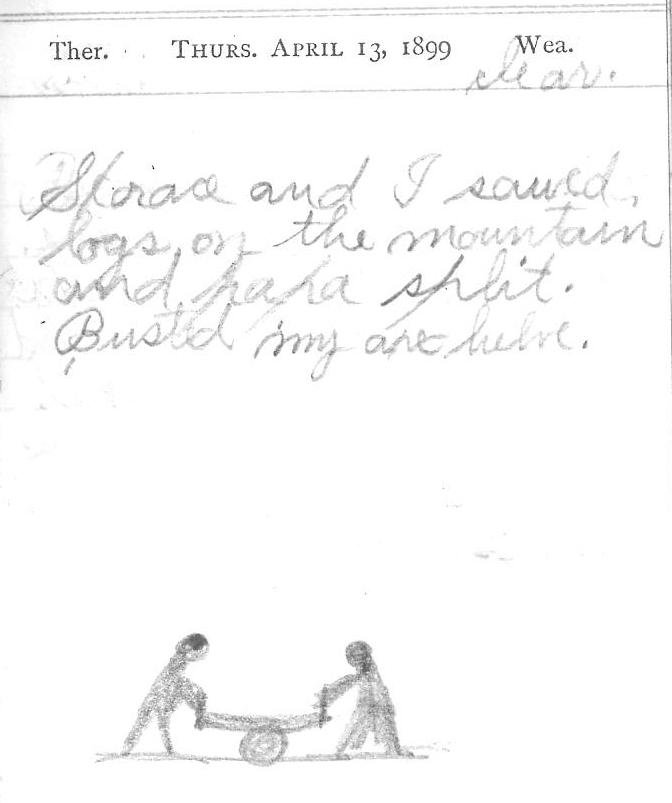 Ther. THURS. APRIL 13, 1899 Wea.
clear.
Horace and I sawed
logs on the mountain
and papa split.
Busted my axe helve.